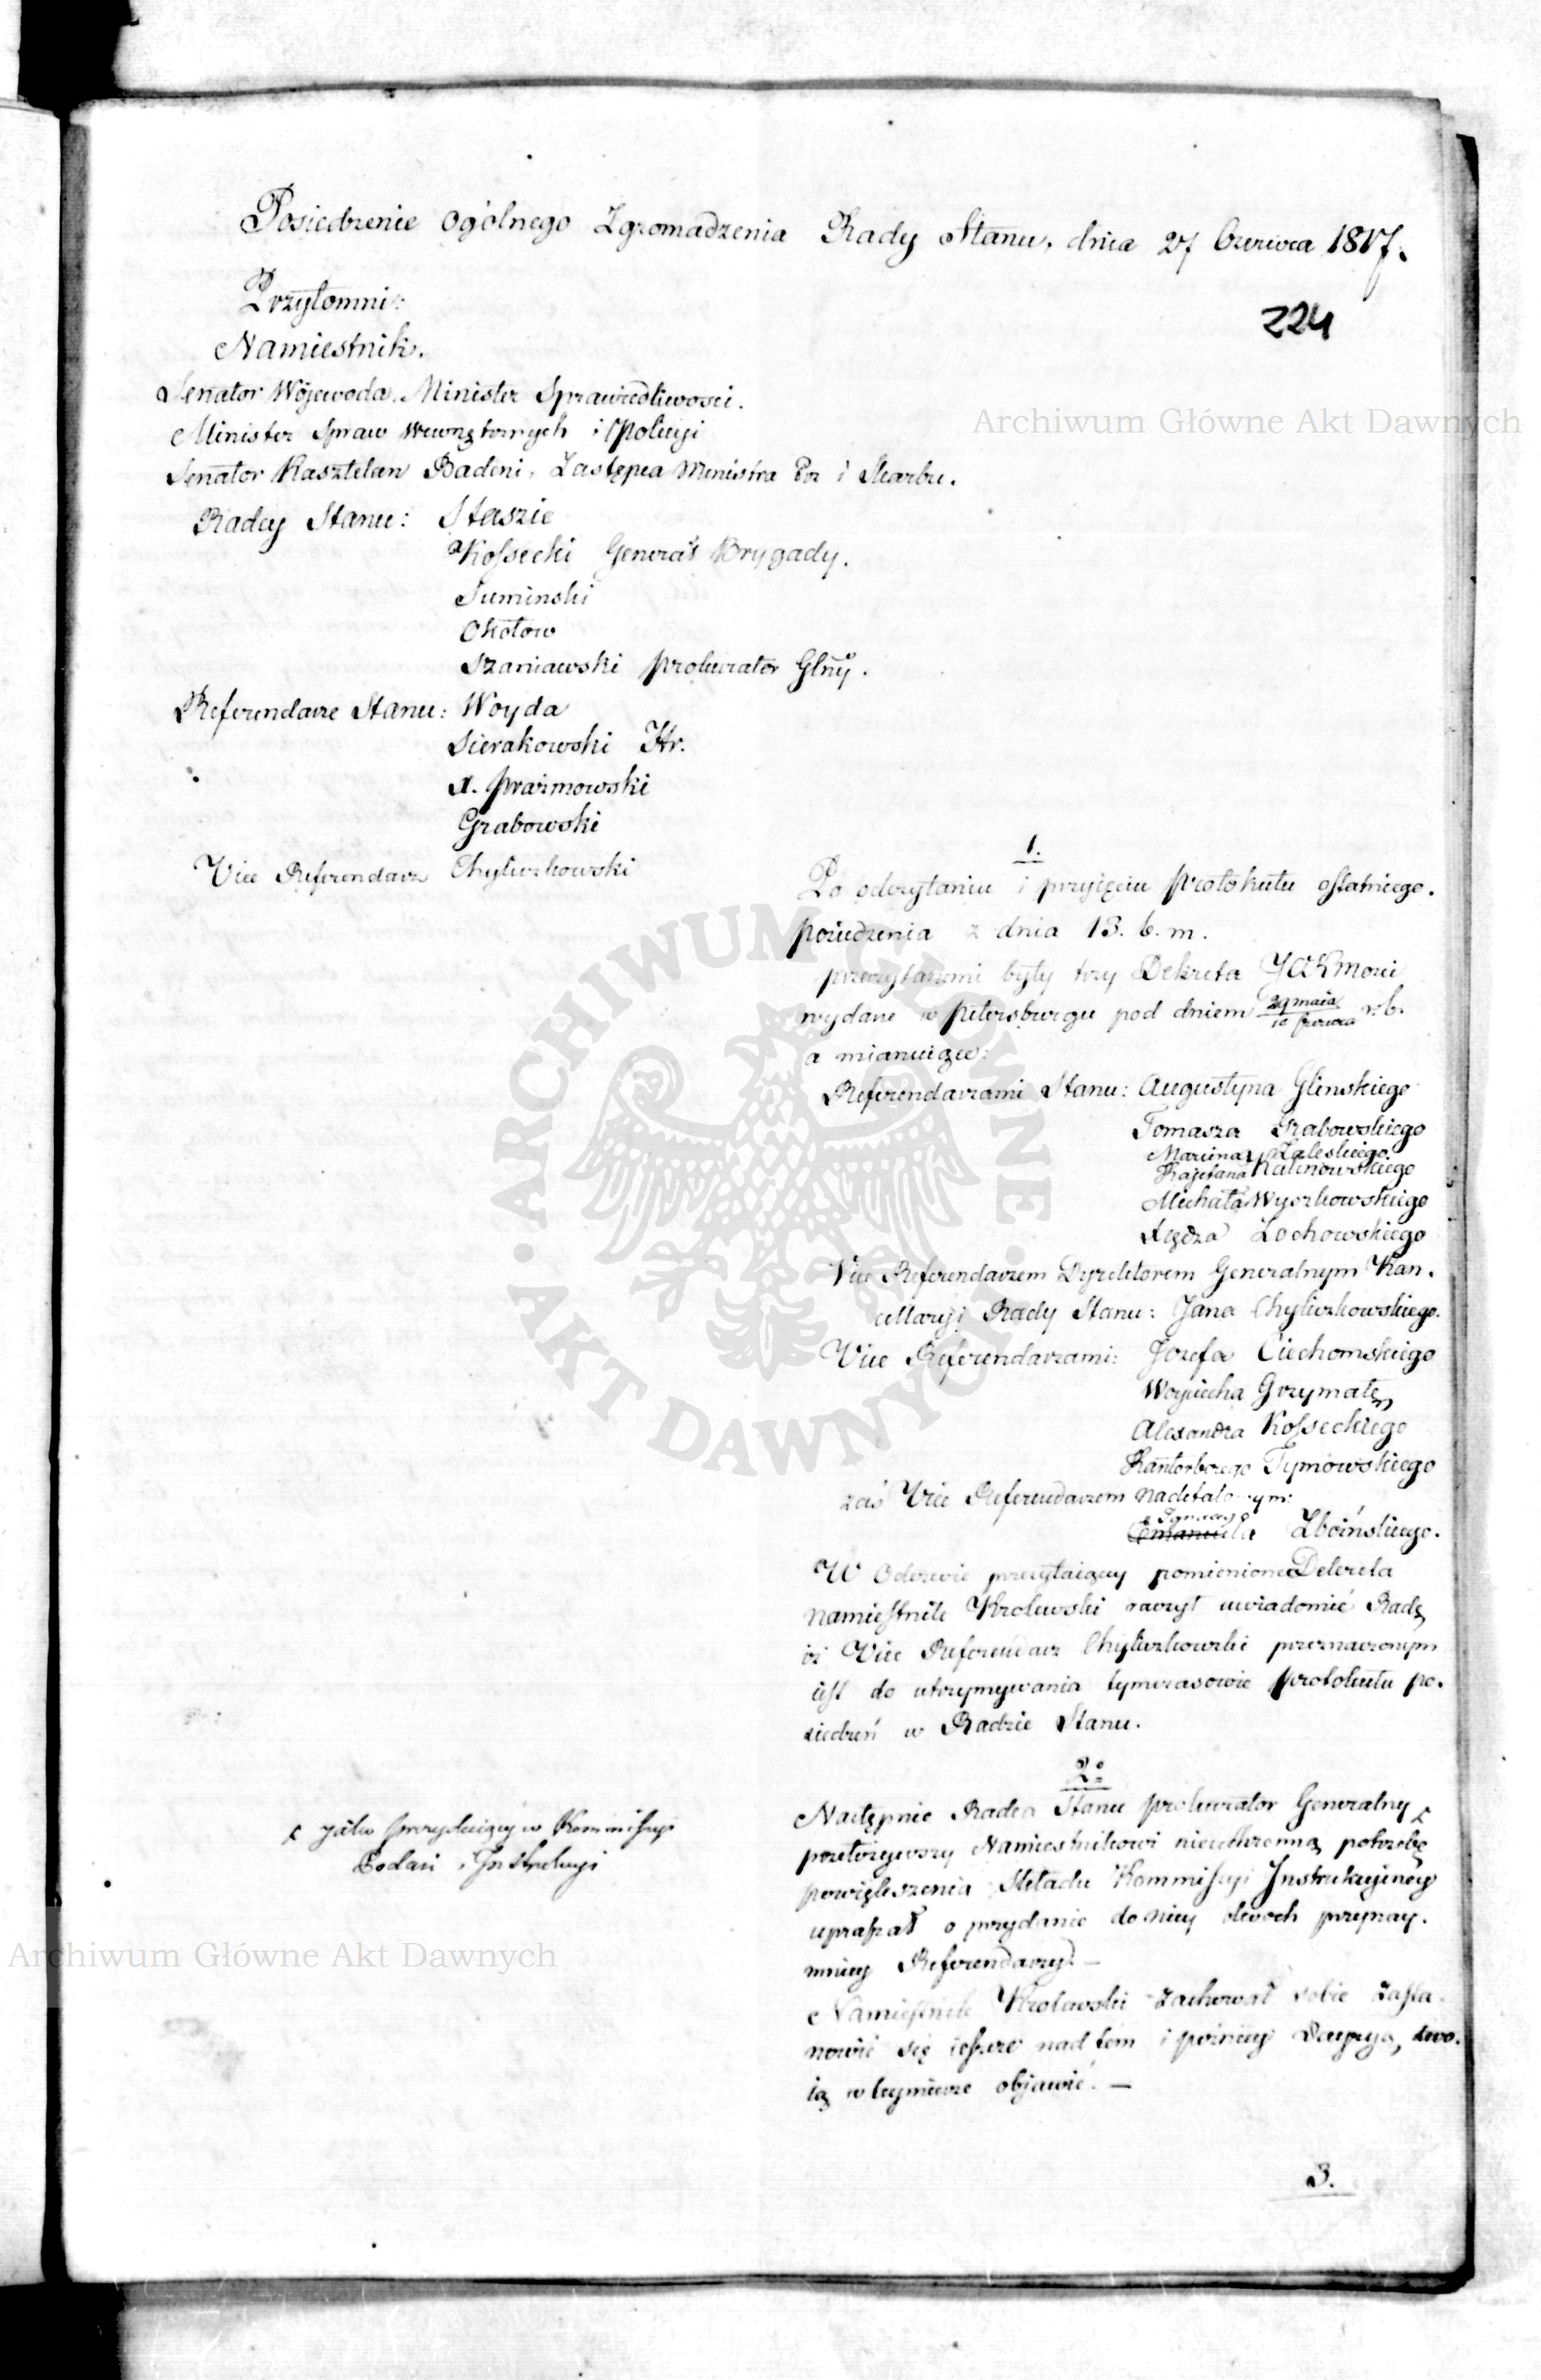 Posiedzenie Ogólnego Zgromadzenia Rady Stanu, dnia 27 Czerwca 1817.
224
Przytomni:
Namiestnik.
Senator Wojewoda, Minister Sprawiedliwosci.
Minister Spraw Wewnętrznych i Policyi
Senator Kasztelan Badeni, Zastępca Ministra Prz i Skarbu.
Radcy Stanu: Staszic
Kossecki Generał Brygady.
Suminski
Okołow
Szaniawski Prokurator Glny.
Referendarze Stanu: Woyda
Sierakowski Hr.
X. Prażmowski
Grabowski
Vice Referendarz Chyliczkowski
1.
Po odczytaniu i przyięciu Protokułu ostatniego.
posiedzenia z dnia 13. b. m.
przeczytanemi były trzy Dekreta JCKMości
wydane w Petersburgu pod dniem 29 maia / 10 Czerwca r. b.
a mianuiące:
Referendarzami Stanu: Augustyna Glinskiego
Tomasza Grabowskiego
Marcina Zaleskiego
Kajetana Kalinowskiego
Michała Wyczkowskiego
Xiędza Lochowskiego
Vice Referendarzem Dyrektorem Generalnym Kan.
cellaryi Rady Stanu: Jana Chyliczkowskiego.
Vice Referendarzami: Jozefa Ciechomskiego
Woyciecha Grzymałę
Alexandra Kosseckiego
Kantorberego Tymowskiego
zaś Vice Referendarzem Nadetatowym:
Ignacego
Emanuela Zboińskiego.
W Odezwie przesyłaiący pomienione Dekreta
Namiestnik Krolewski raczył uwiadomić Radę
iż Vice Referendarz Chyliczkowski przeznaczonym
iest do utrzymywania tymczasowie Protokułu po.
siedzeń w Radzie Stanu.
2o
Następnie Radca Stanu Prokurator Generalny
jako Prezyduiący w Kommissyi
Podań i Instrukcyi
przełożywszy Namiestnikowi nieuchronną potrzebę
powiększenia Składu Kommissyi Instrukcyiney
upraszał o przydanie do niey dwoch przynay.
mniey Referendarzy. —
Namiestnik Krolewski zachował sobie zasta.
nowić się ieszcze nad tem i pozniey Decyzyą swo.
ią w teymierze objawić. —
3.
Archiwum Główne Akt Dawnych
ARCHIWUM GŁÓWNE AKT DAWNYCH
Archiwum Główne Akt Dawnych